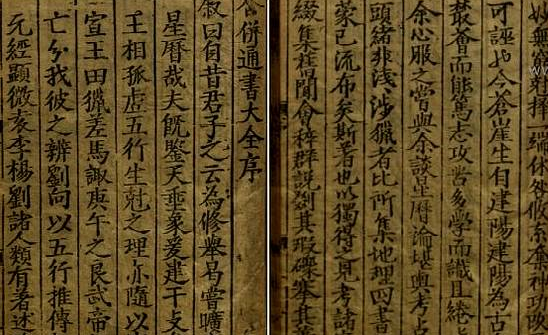 併通書大全序
叙曰自昔君子之云為修舉曷嘗曠
星曆哉夫既鑒天垂象爰建干支
王相孤虛五行生剋之理亦隨以
宣王田獵差馬諏庚午之良武帝
亡分我彼之辨劉向以五行推傳
元經顯微袁李楊劉諸人類有著述
妙無窮射擇一端休咎攸系集神功
可誣也今蒼崖生自建陽建陽為古
叢薈而能篤志攻苦多學而識且綣
余心服之嘗與余談星曆論堪輿考
頭緒非淺涉獵者比所集地理四書
蒙已流布矣斯著也以獨得之見考諸
綴集桂間會稡群說剗其瑕礫搴其